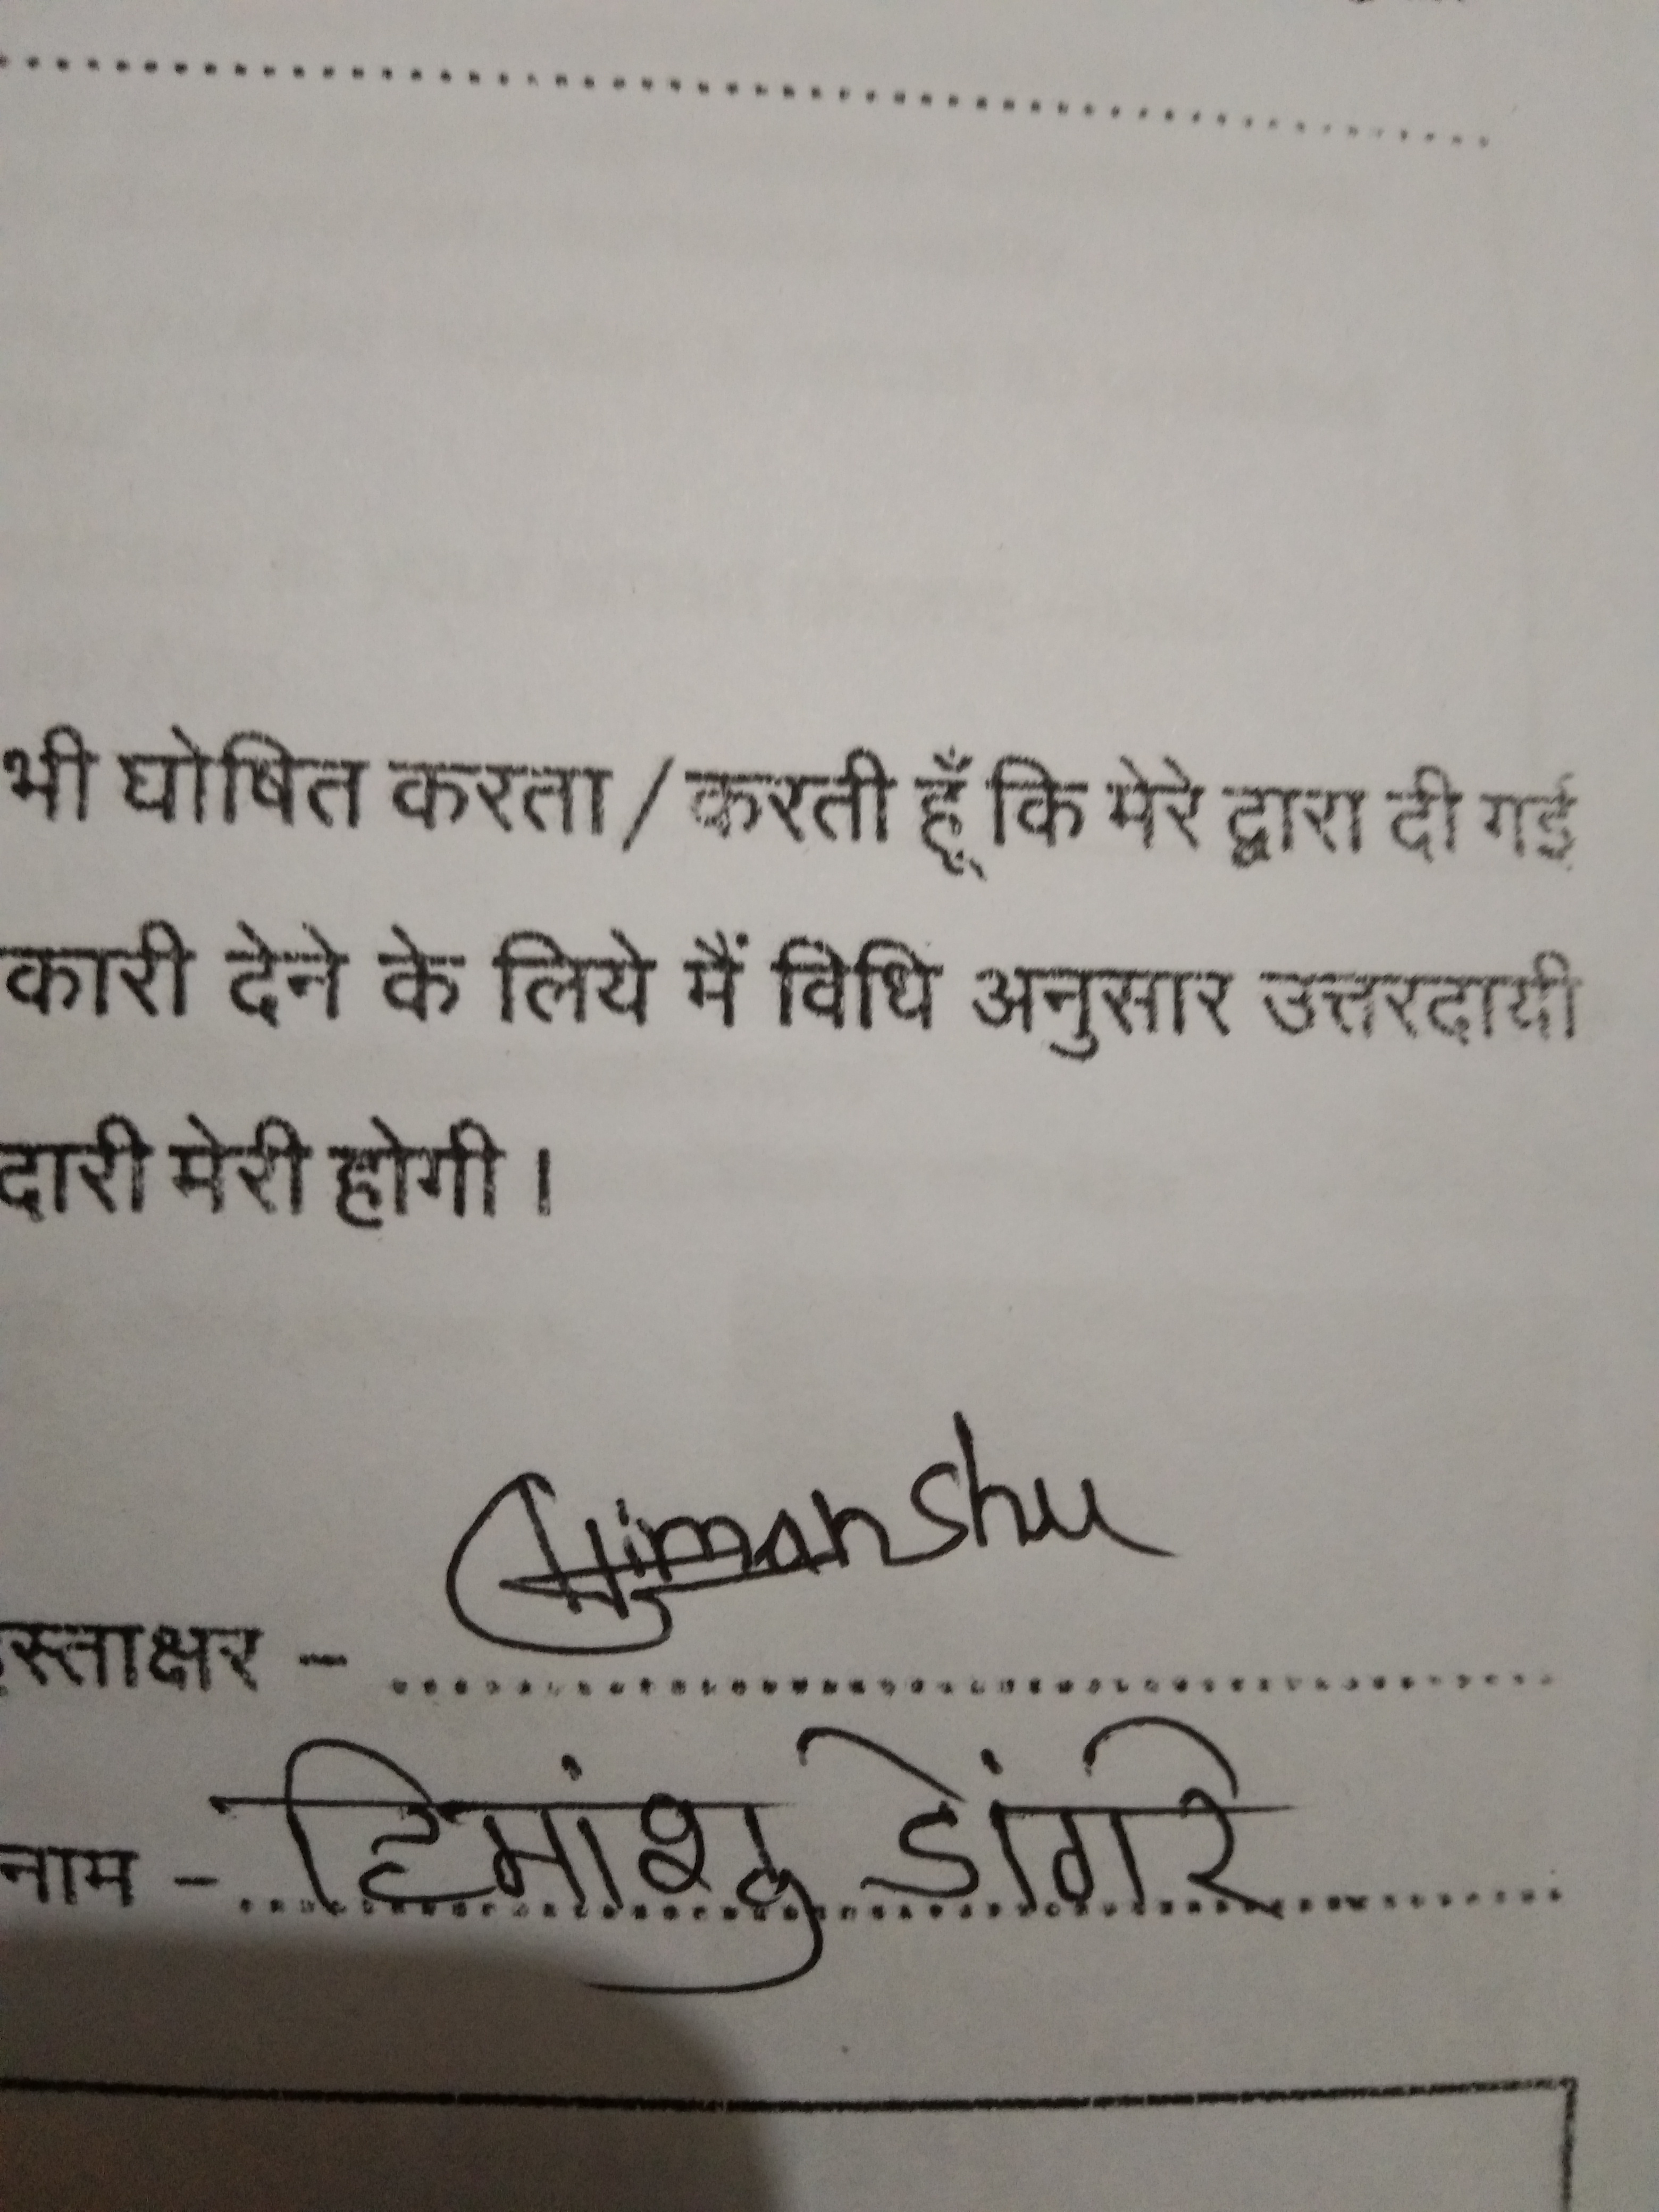 भी घोषित करता / करती हूँ कि मेरे द्वारा दी गई
कारी देने के लिये मैं विधि अनुसार उत्तरदायी
दारी मेरी होगी ।
Himanshu
हस्ताक्षर -
नाम - हिमांशु डोंगरे